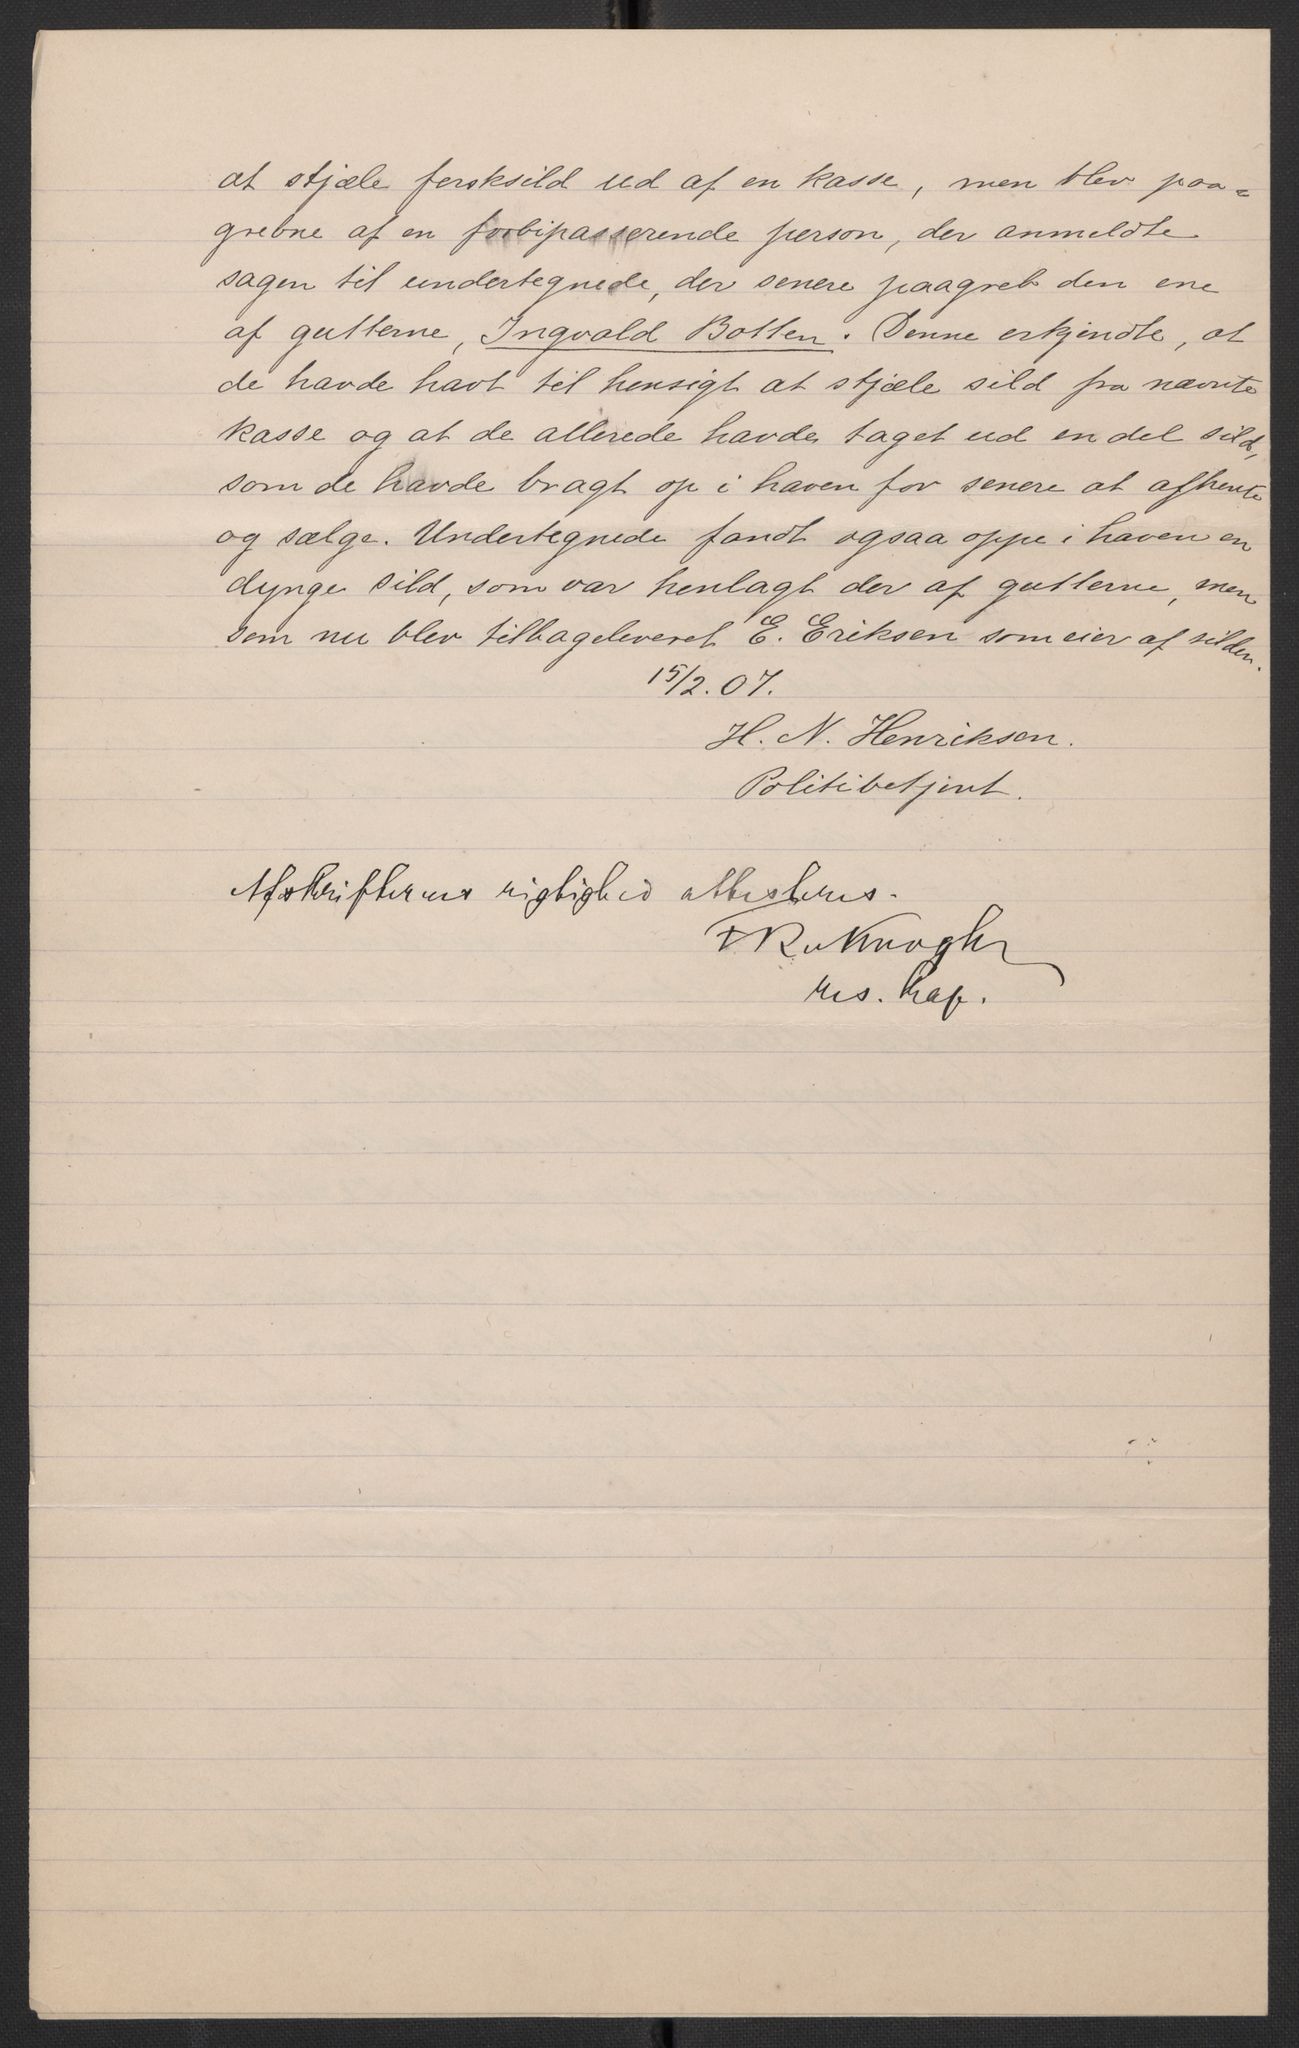 at stjæle fersksild ud af en kasse, men blev paa=
grebne af en forbipasserende person, der anmeldte
sagen til undertegnede, der senere paagreb den ene
af gutterne, Ingvald Botten. Denne erkjendte, at
de havde havt til hensigt at stjæle sild fra nævnte
kasse og at de allerede havde taget ud en del sild,
som de havde bragt op i haven for senere at afhente
og sælge. Undertegnede fandt ogsaa oppe i haven en
dynge sild, som var henlagt der af gutterne, men
som nu blev tilbageleveret E. Eriksen som eier af silden.
15/2. 07.
H. N. Henriksen.
Politibetjent.
Afskrifternes rigtighed attesteres.
res. kap.